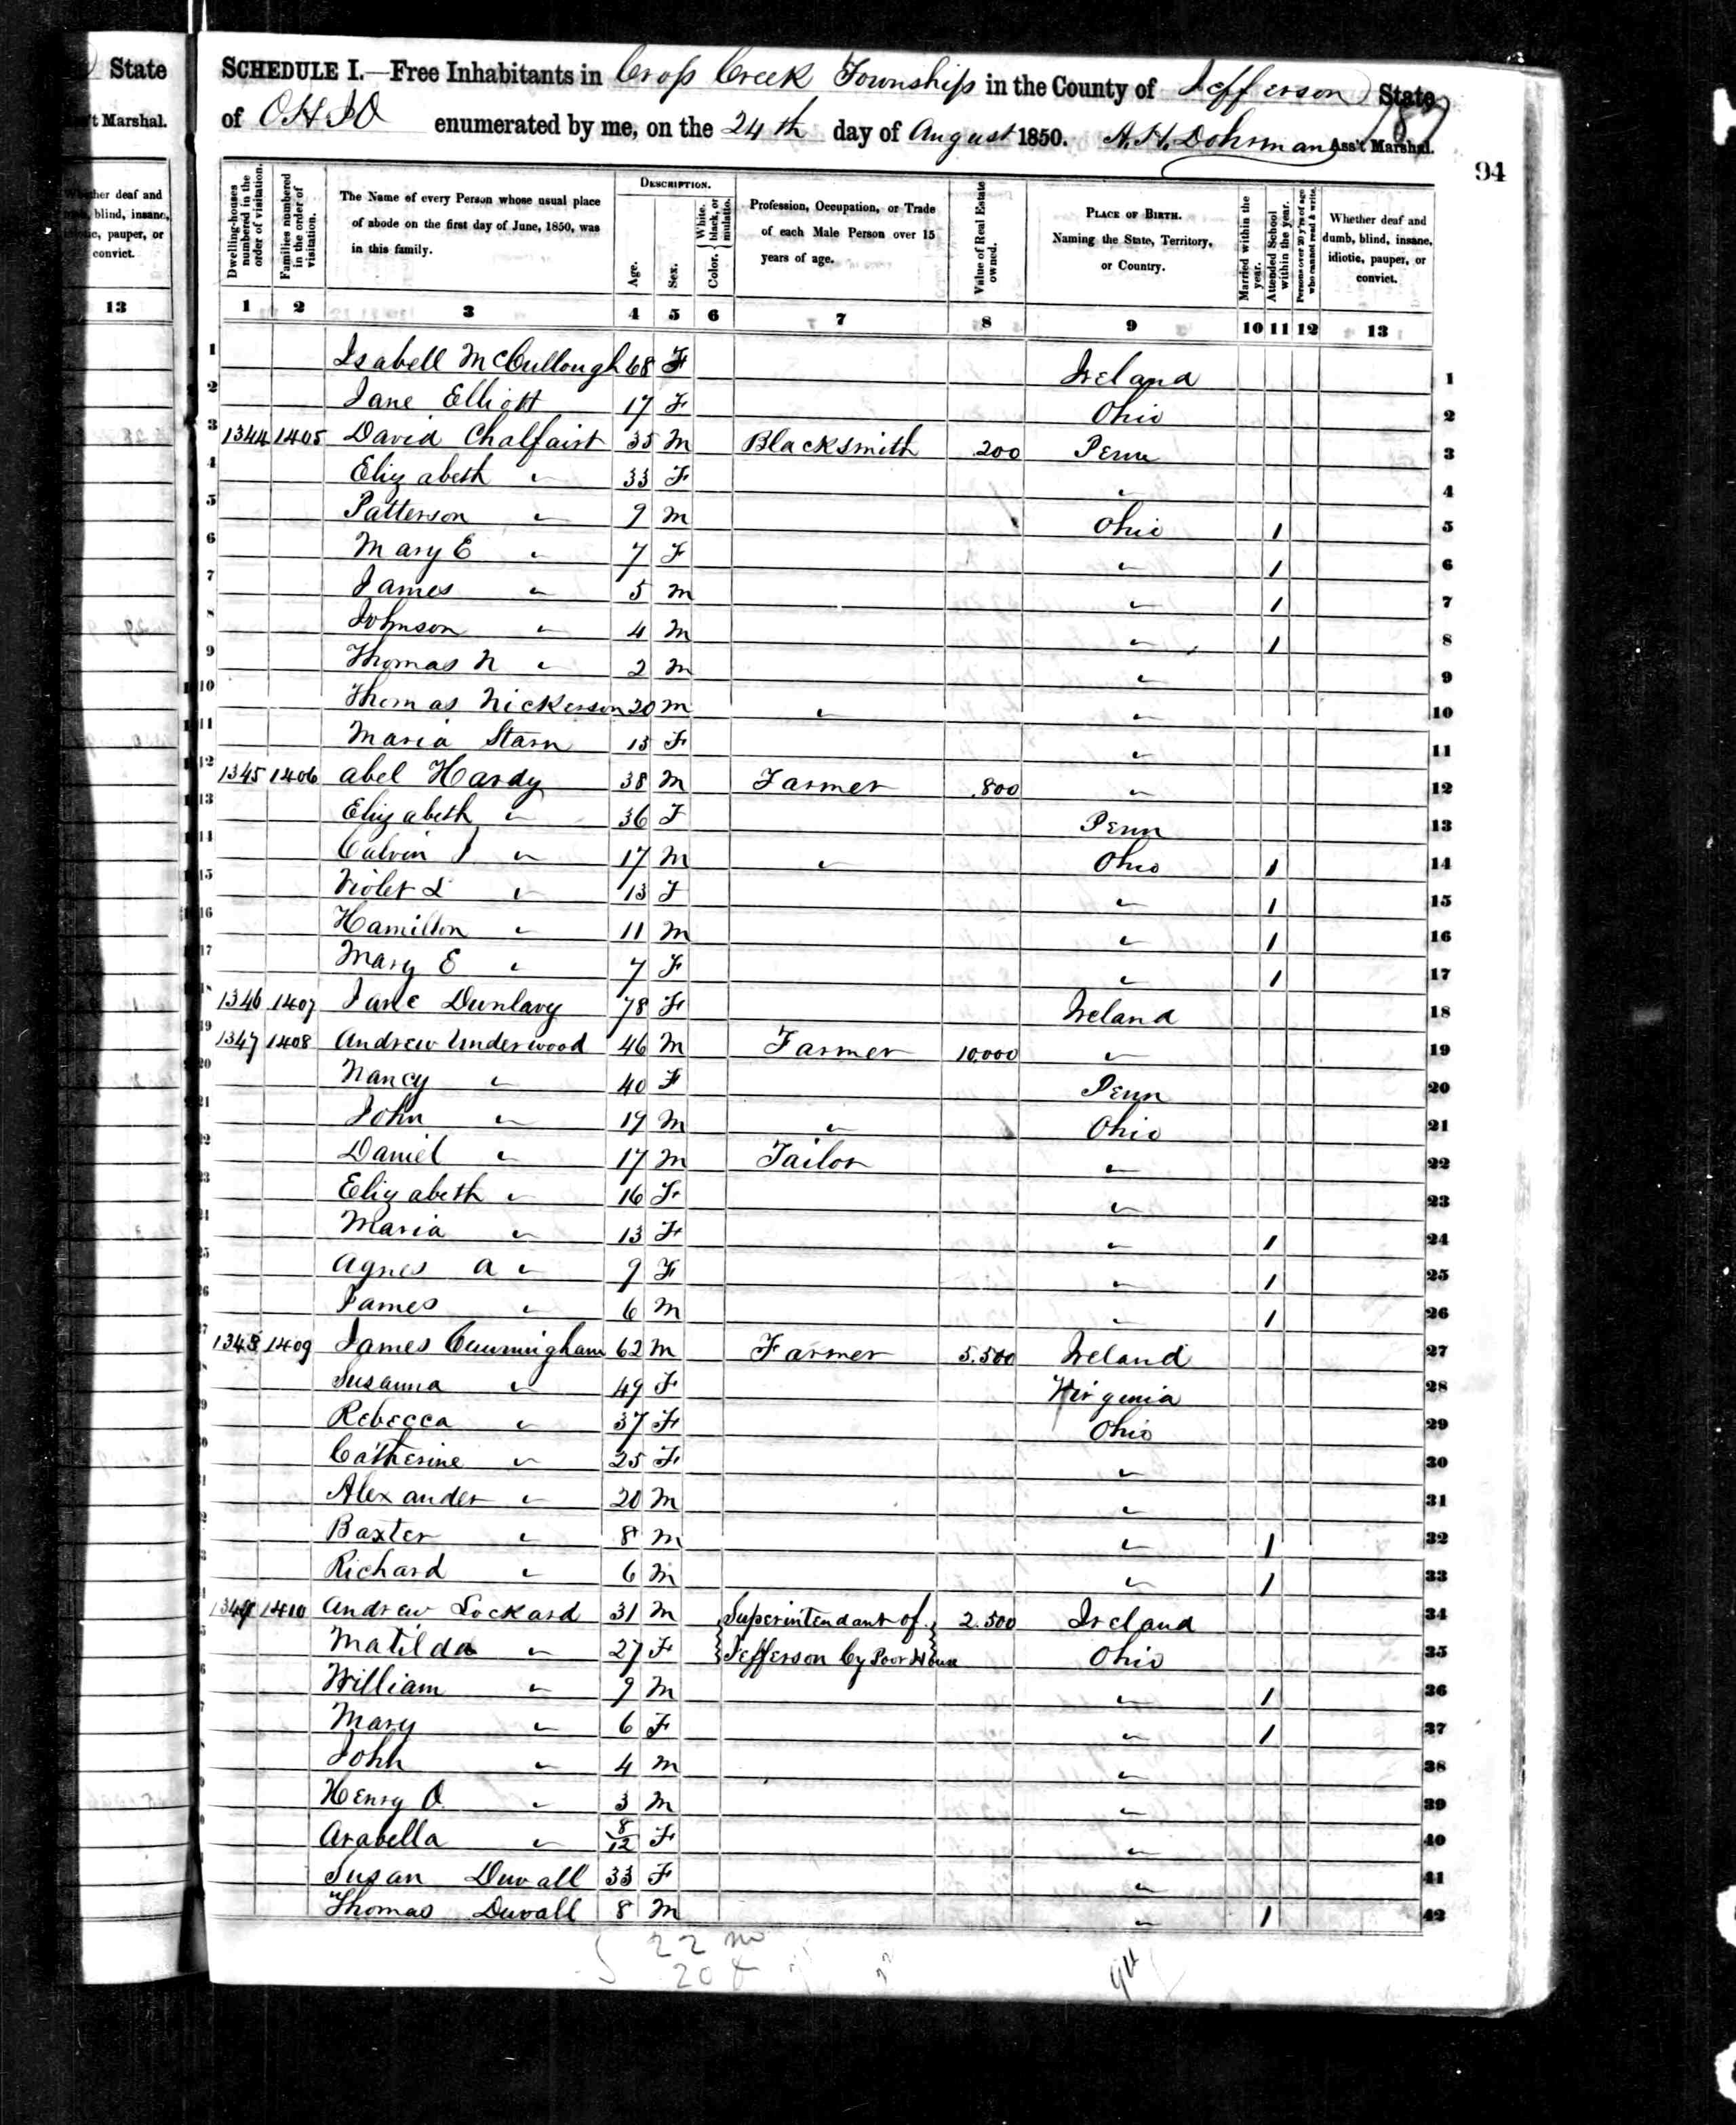 State
SCHEDULE I.—Free Inhabitants in Cross Creek Township in the County of Jefferson State
of OHIO enumerated by me, on the 24th day of August 1850. A. H. Dohrman Ass't Marshal.
't Marshal.
94
Whether deaf and dumb, blind, insane, idiotic, pauper, or convict.
13
Dwelling-houses numbered in the order of visitation.
Families numbered in the order of visitation.
The Name of every Person whose usual place of abode on the first day of June, 1850, was in this family.
DESCRIPTION.
Age.
Sex.
Color, White, black, or mulatto.
Profession, Occupation, or Trade of each Male Person over 15 years of age.
Value of Real Estate owned.
PLACE OF BIRTH. Naming the State, Territory, or Country.
Married within the year.
Attended School within the year.
Persons over 20 y'rs of age who cannot read & write.
Whether deaf and dumb, blind, insane, idiotic, pauper, or convict.
1 2 3 4 5 6 7 8 9 10 11 12 13
1 Isabell McCullough 68 F Ireland 1
2 Jane Elliott 17 F Ohio 2
3 1344 1405 David Chalfant 35 M Blacksmith 200 Penn 3
4 Elizabeth " 33 F " 4
5 Patterson " 9 M Ohio 1 5
6 Mary E " 7 F " 1 6
7 James " 5 M " 1 7
8 Johnson " 4 M " 1 8
9 Thomas N " 2 M " 9
10 Thomas Nickerson 20 M " " 10
11 Maria Starn 13 F " 11
12 1345 1406 Abel Hardy 38 M Farmer 800 " 12
13 Elizabeth " 36 F Penn 13
14 Calvin J " 17 M " Ohio 1 14
15 Violet L " 13 F " 1 15
16 Hamilton " 11 M " 1 16
17 Mary E " 7 F " 1 17
1346 1407 Jane Dunlavy 78 F Ireland 18
19 1347 1408 Andrew Underwood 46 M Farmer 10.000 " 19
20 Nancy " 40 F Penn 20
21 John " 19 M " Ohio 21
22 Daniel " 17 M Tailor " 22
23 Elizabeth " 16 F " 23
Maria " 13 F " 1 24
Agnes A " 9 F " 1 25
James " 6 M " 1 26
1348 1409 James Cunningham 62 M Farmer 5.500 Ireland 27
Susanna " 49 F Virginia 28
Rebecca " 37 F Ohio 29
Catherine " 25 F " 30
Alexander " 20 M " 31
Baxter " 8 M " 1 32
Richard " 6 M " 1 33
1349 1410 Andrew Lockard 31 M Superintendant of 2.500 Ireland 34
Matilda " 27 F Jefferson Cy Poor House Ohio 35
William " 9 M " 1 36
Mary " 6 F " 1 37
John " 4 M " 38
Henry O " 3 M " 39
Arabella " 8/12 F " 40
Susan Duvall 33 F " 41
Thomas Duvall 8 M " 1 42
22 m
20 f